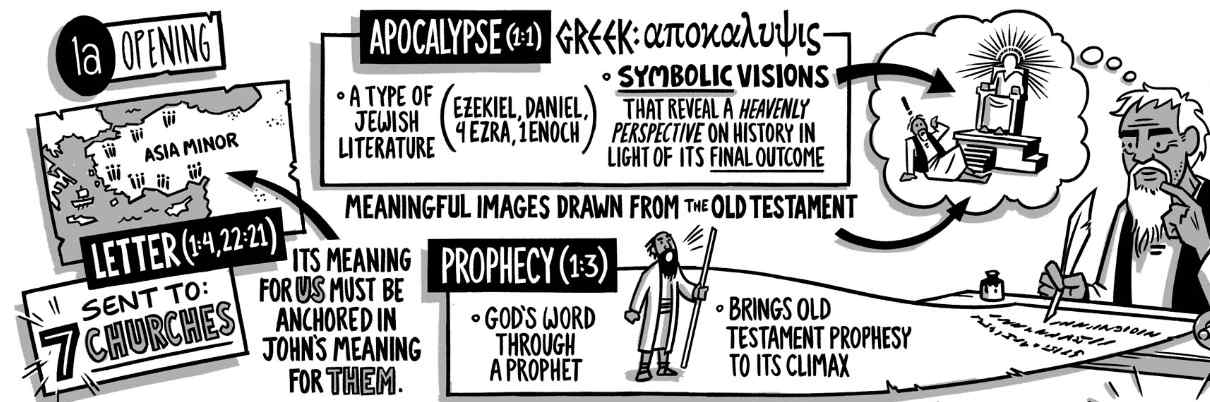 1a OPENING
ASIA MINOR
LETTER (1:4, 22:21)
SENT TO:
7 CHURCHES
ITS MEANING
FOR US MUST BE
ANCHORED IN
JOHN'S MEANING
FOR THEM.
APOCALYPSE (1:1) GREEK: αποκαλυψις
• A TYPE OF
JEWISH
LITERATURE
(EZEKIEL, DANIEL,
4 EZRA, 1 ENOCH)
• SYMBOLIC VISIONS
THAT REVEAL A HEAVENLY
PERSPECTIVE ON HISTORY IN
LIGHT OF ITS FINAL OUTCOME
MEANINGFUL IMAGES DRAWN FROM THE OLD TESTAMENT
PROPHECY (1:3)
• GOD'S WORD
THROUGH
A PROPHET
• BRINGS OLD
TESTAMENT PROPHESY
TO ITS CLIMAX